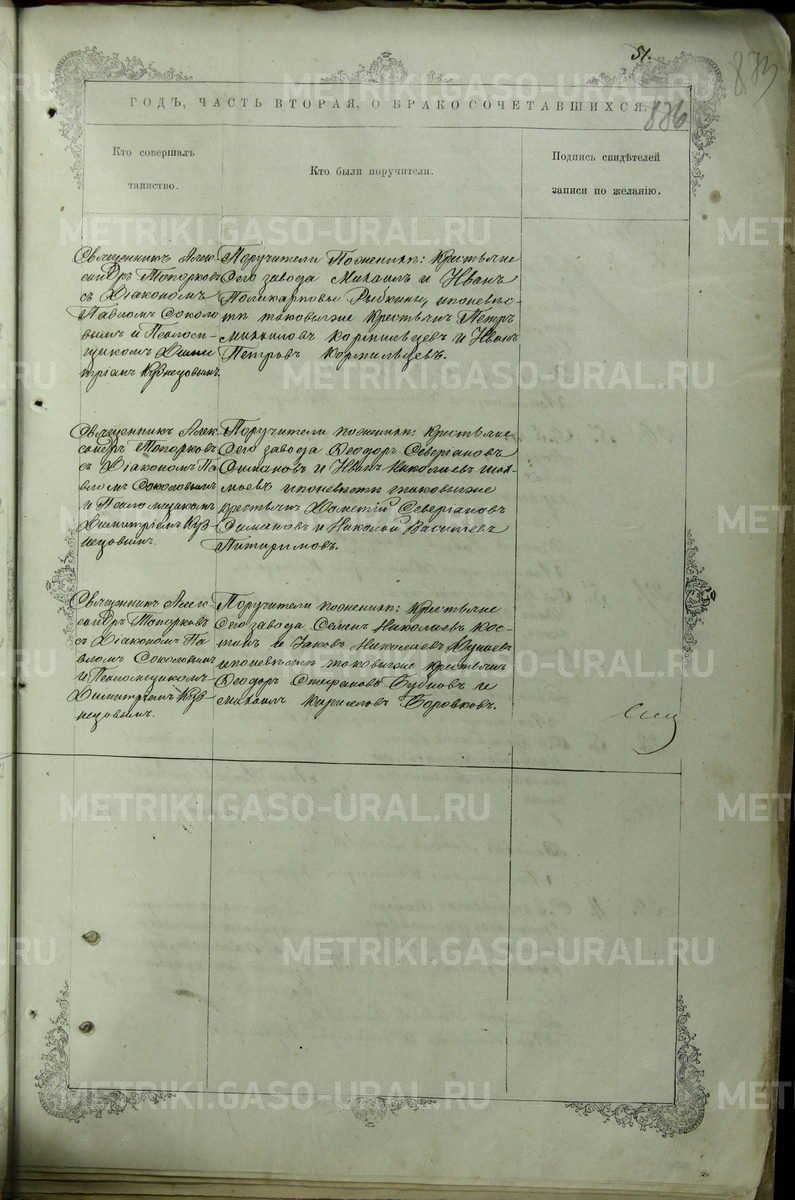 51.
873
876
ГОДЪ, ЧАСТЬ ВТОРАЯ, О БРАКОСОЧЕТАВШИХСЯ.
Кто совершалъ
таинство.
Кто были поручители.
Подпись свидѣтелей
записи по желанію.
Священникъ Алек-
сандръ Топорковъ
съ Діакономъ
Павломъ Соколо
вымъ и Псалом-
щикомъ Дими
тріемъ Кузнецовымъ.
Поручители по женихѣ: Крестьяне
сего завода Михаилъ и Иванъ
Поликарповы Рыбкины, и по невѣс-
тѣ таковые же крестьяне Петръ
Михаиловъ Кормильцевъ и Иванъ
Петровъ Кормильцевъ.
Священникъ Алек-
сандръ Топорковъ
съ Діакономъ Па
вломъ Соколовымъ
и Псаломщикомъ
Димитріемъ Куз-
нецовымъ.
Поручители по женихѣ: Крестьяне
сего завода Ѳеодоръ Северіановъ
и Иванъ Николаевъ
и по невѣстѣ таковые же
крестьяне Северіановъ
и Николай Васильевъ
Питиримовъ.
Священникъ Алек-
сандръ Топорковъ
съ Діакономъ Па
вломъ Соколовымъ
и Псаломщикомъ
Димитріемъ Куз-
нецовымъ.
Поручители по женихѣ: Крестьяне
сего завода Семенъ Николаевъ Кос-
тинъ и Іаковъ Николаевъ
и по невѣстѣ таковые же крестьяне
Ѳеодоръ Стефановъ Бубновъ и
Михаилъ Кирилловъ Боровковъ.
METRIKI.GASO-URAL.RU